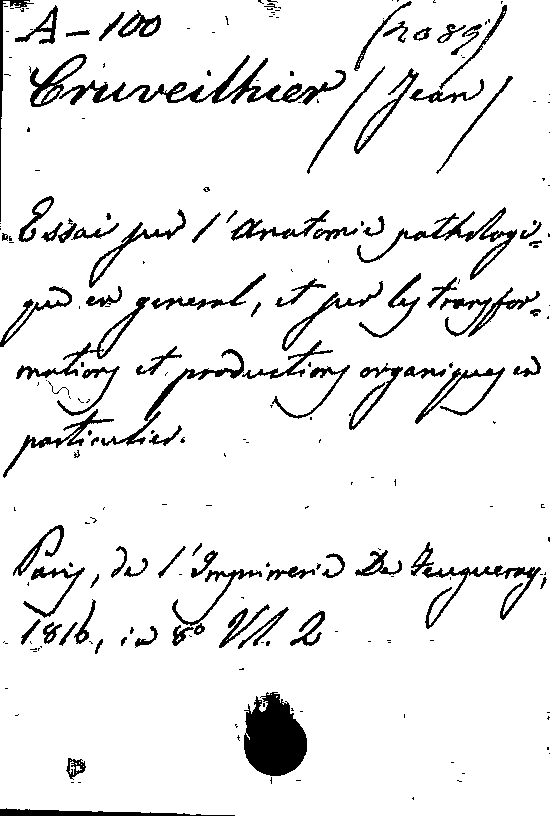 A-100 (2089)
Cruveilhier (Jean)
Essai sur l'Anatomie pathologi=
que en general, et sur les transfor=
mations et productions organiques en
particulier.
Paris, de l'Imprimerie De Feugueray,
1816, in 8º Vl. 2